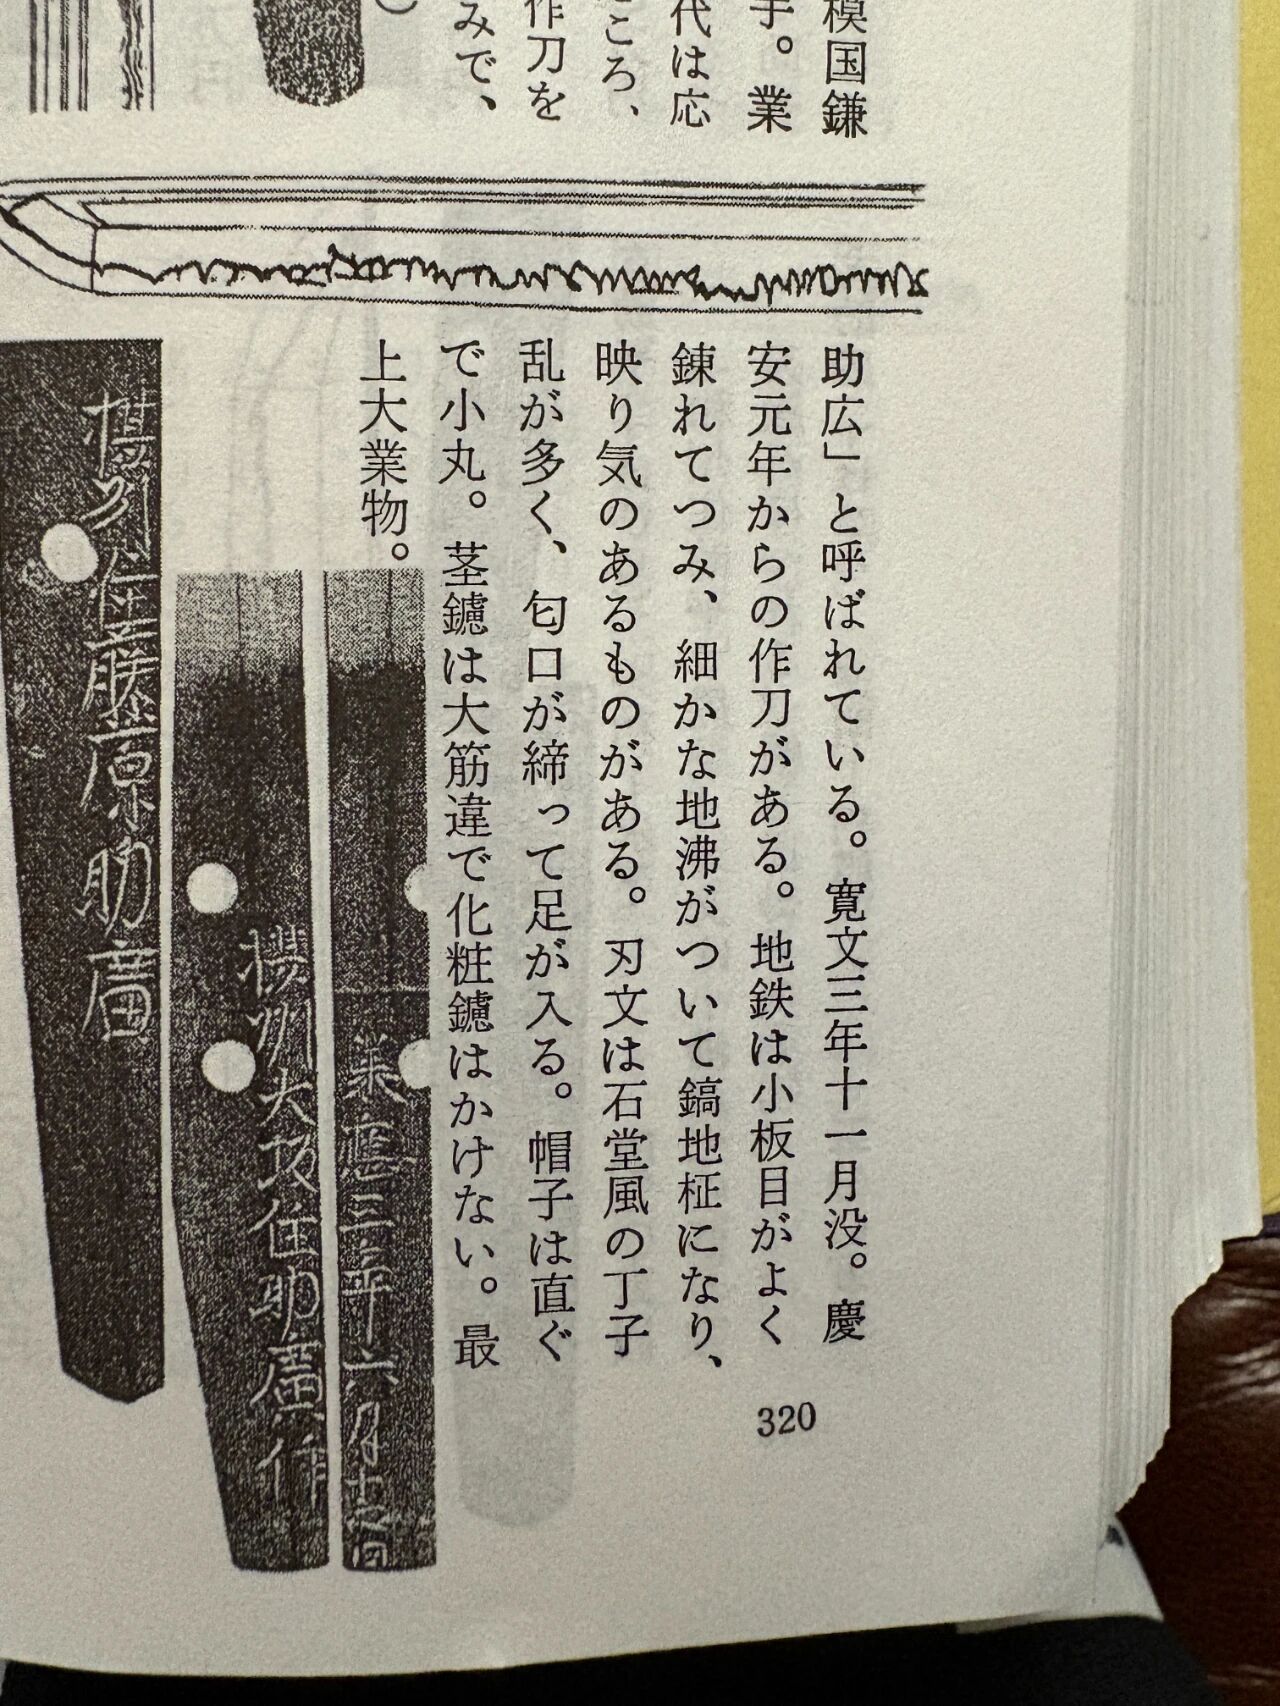 模国鎌
手。業
代は応
ころ、
作刀を
みで、
助広」と呼ばれている。寛文三年十一月没。慶
安元年からの作刀がある。地鉄は小板目がよく
錬れてつみ、細かな地沸がついて鎬地柾になり、
映り気のあるものがある。刃文は石堂風の丁子
乱が多く、匂口が締って足が入る。帽子は直ぐ
で小丸。茎鑢は大筋違で化粧鑢はかけない。最
上大業物。
承應三年六月吉日
摂州大坂住助廣作
摂州住藤原助廣
320